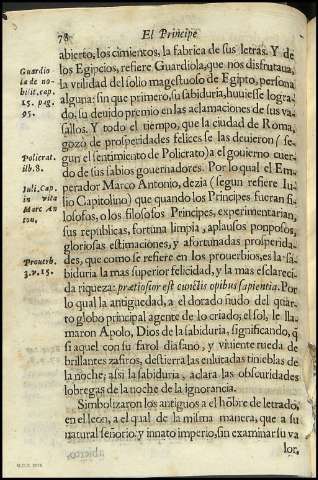 78 El Principe
abierto, los cimientos, la fabrica de sus letras. Y de
los Egipcios, refiere Guardiola, que nos disfrutaua,
la vtilidad del solio magestuoso de Egipto, persona
alguna: sin que primero, su sabiduria, huuiesse logra-
do, su deuido premio en las aclamaciones de sus va-
sallos. Y todo el tiempo, que la ciudad de Roma,
gozò de prosperidades felices se las deuieron (se-
gun el sentimiento de Policrato) a el gouierno cuer-
do de sus sabios gouernadores. Por lo qual el Em-
perador Marco Antonio, dezia (segun refiere Iu-
lio Capitolino) que quando los Principes fueran fi-
losofos, o los filosofos Principes, experimentarian,
sus republicas, fortuna limpia, aplausos popposos,
gloriosas estimaciones, y afortunadas prosperida-
des, que como se refiere en los prouerbios, es la sa-
biduria la mas superior felicidad, y la mas esclareci-
da riqueza: prætiosior est cunctis opibus sapientia. Por
lo qual la antiguedad, a el dorado ñudo del quar-
to globo principal agente de lo criado, el sol, le lla-
maron Apolo, Dios de la sabiduria, significando, q̃
si aquel con su farol diafano, y viuiente rueda de
brillantes zafiros, destierra las enlutadas tinieblas de
la noche; assi la sabiduria, aclara las obscuridades
lobregas de la noche de la ignorancia.
Simbolizaron los antiguos a el hõbre de letrado,
en el leon, a el qual de la misma manera, que a su
natural señorio, y innato imperio, sin examinar su va
lor,
Guardio
la de no-
bilit. cap.
15. pag.
95.
Policrat.
lib. 8.
Iuli. Cap.
in vita
Marc An
ton.
Prouerb.
3. v. 15.